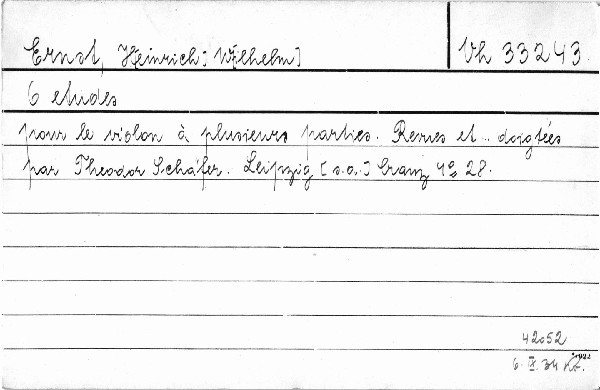 Ernst, Heinrich [Wilhelm] Vh 33243.
6 etudes
pour le violon à plusieurs parties. Revues et .. doigtées
par Theodor Schäfer. Leipzig [s.a.] Cranz 4° 28.
42052
6. IX. 34